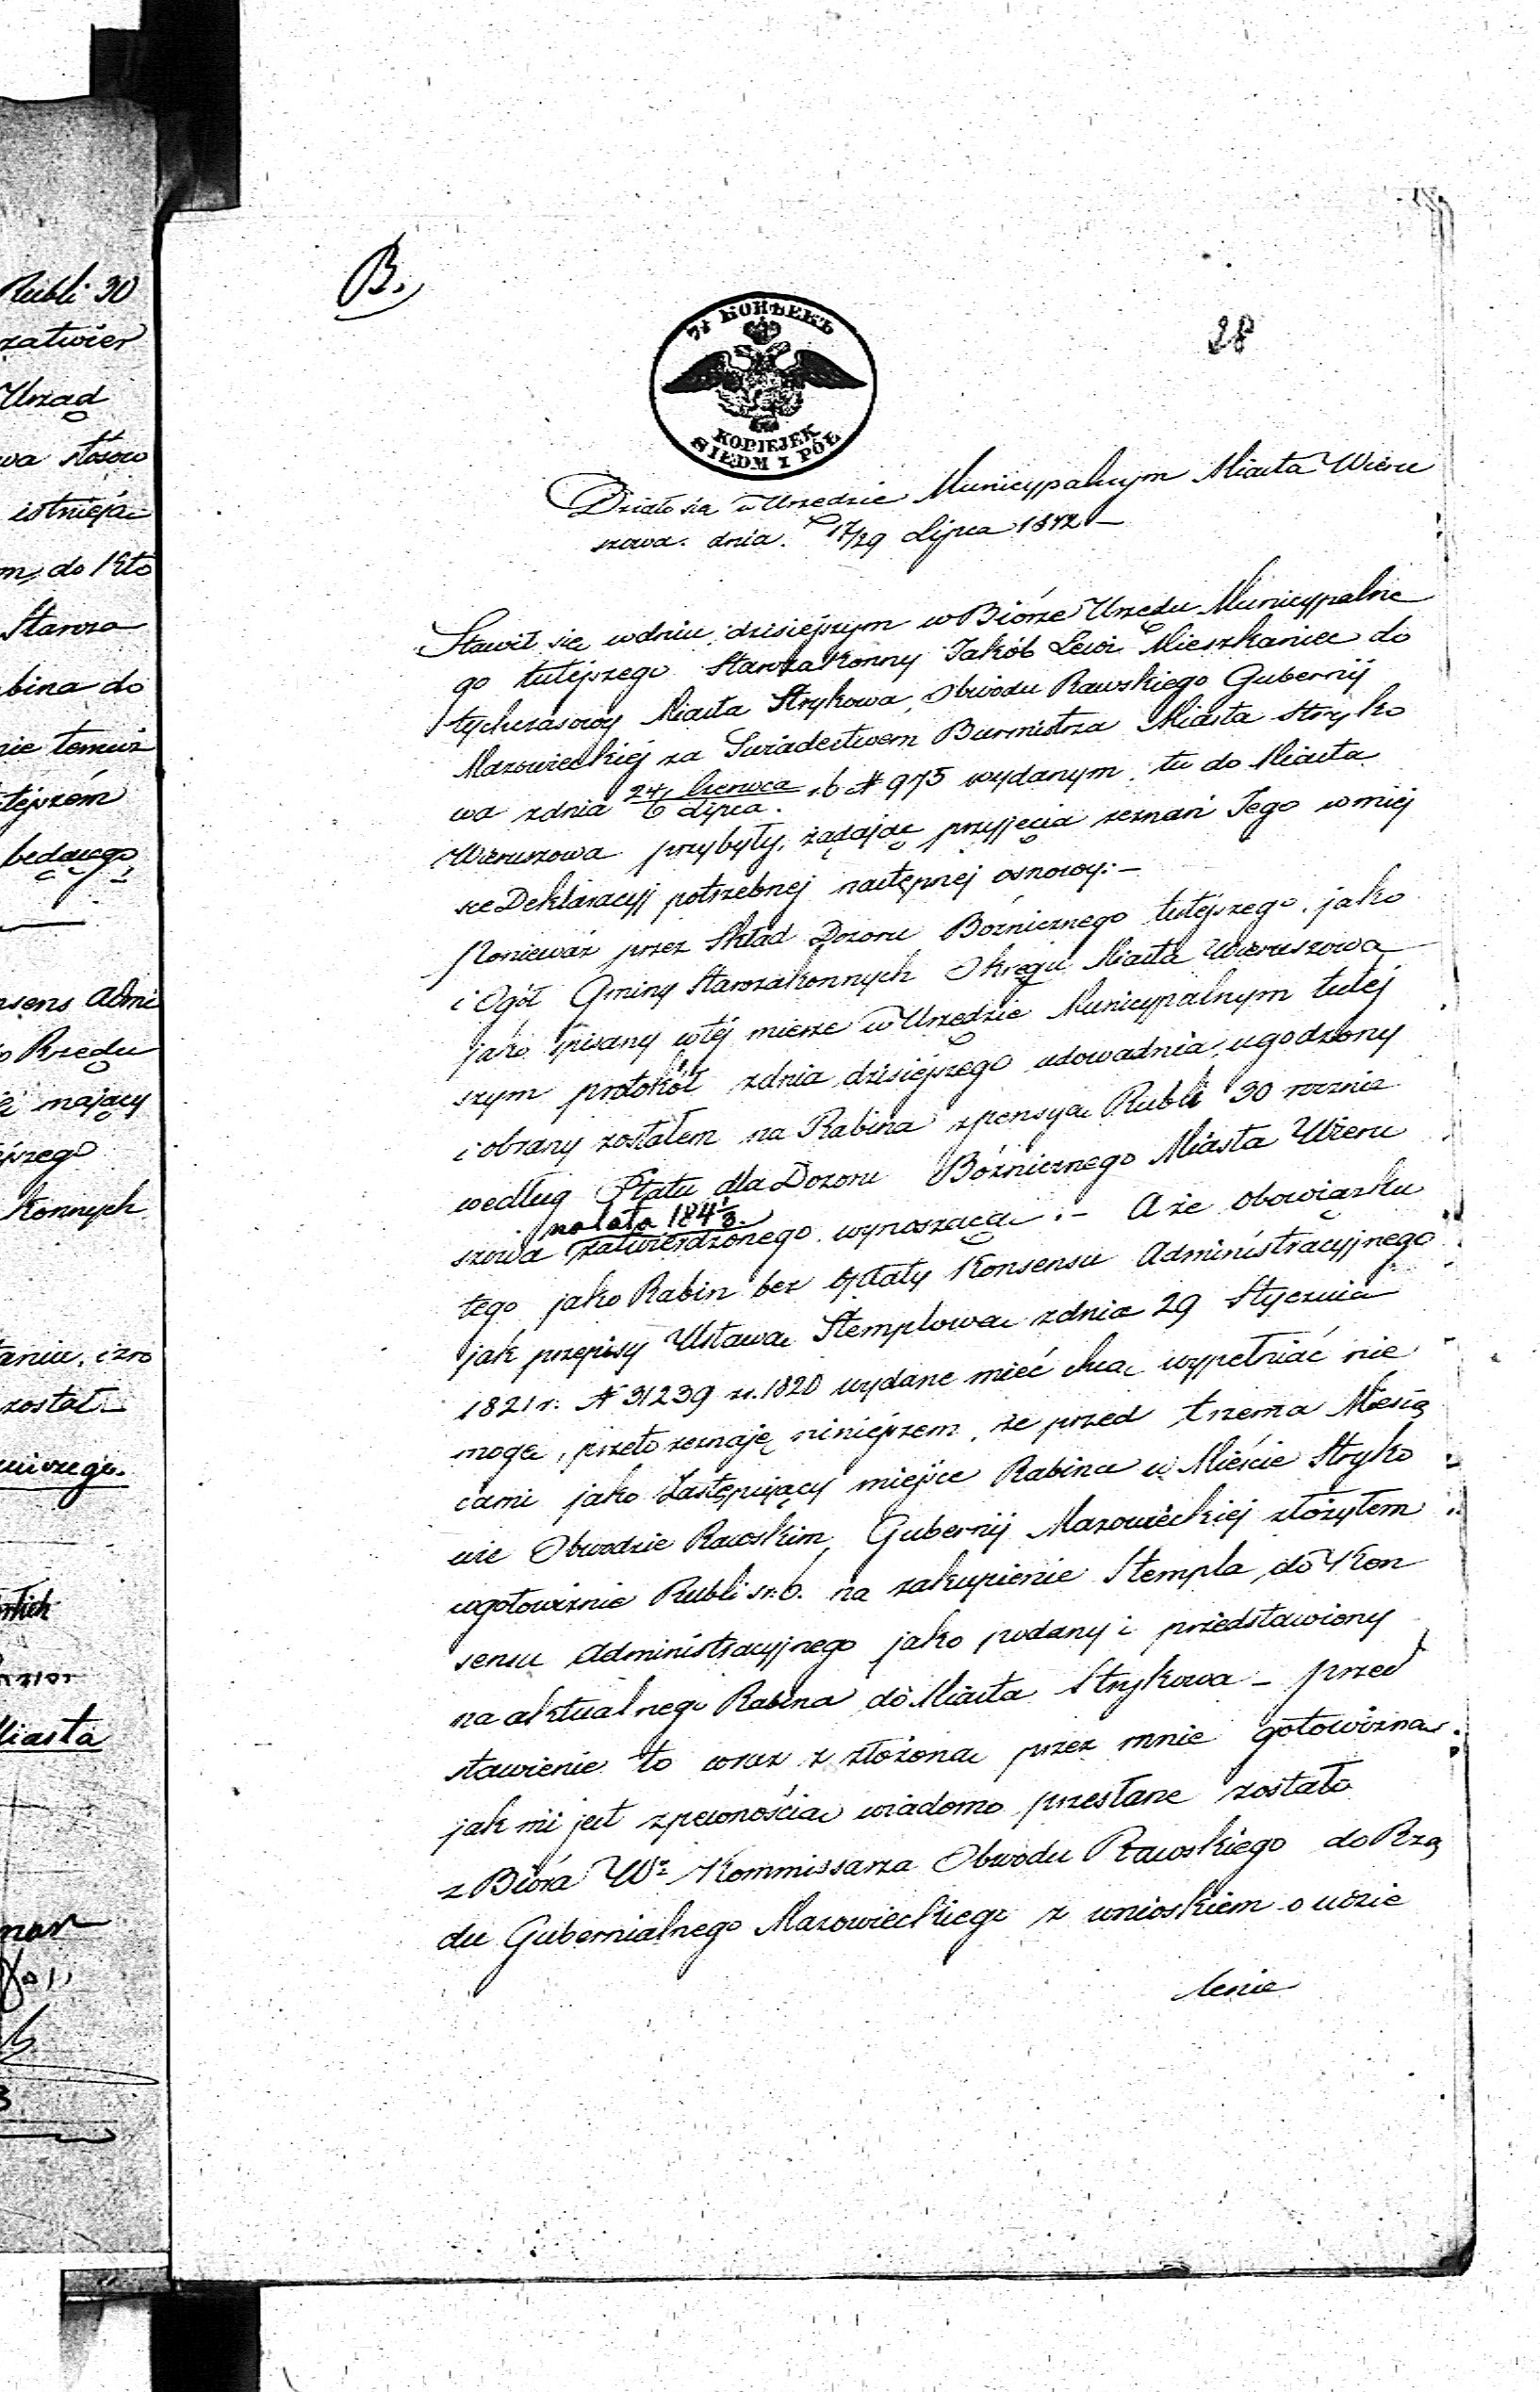 Rubli 30
zatwier
Urząd
wa stosow
istnieją
m, do Kto
Staroza
bina do
nie temuż
tejszém
będącego
nsens Admi
o Rzędu
mający
ejszego
konnych
aniu, i zo
został
Miasta
B.
28
7½ КОПѢЕКЪ
KOPIEJEK
SIEDM I PÓŁ
Działo się w Urzędzie Municypalnym Miasta Wieru
szowa dnia 17/29 Lipca 1842
Stawił się w dniu dzisiejszym w Biórze Urzędu Municypalne
go tutejszego Starozakonny Jakób Lewi Mieszkaniec do
tychczasowy Miasta Strykowa, Obwodu Rawskiego Gubernij
Mazowieckiej za Świadectwem Burmistrza Miasta Stryko
wa z dnia 24 Czerwca / 6 Lipca r. b № 975 wydanym, tu do Miasta
Wieruszowa przybyły, żądając przyjęcia zeznań Jego w miej
sce Deklaracyj potrzebnej następnej osnowy:—
Ponieważ przez Skład Dozoru Bóżnicznego tutejszego, jako
i Ogół Gminy Starozakonnych Okręgu Miasta Wieruszowa
jako spisany w tej mierze w Urzędzie Municypalnym tutej
szym protokół z dnia dzisiejszego udowadnia, ugodzony
i obrany zostałem na Rabina z pensyą Rubli 30 rocznie
według Etatu dla Dozoru Bóżnicznego Miasta Wieru
na lata 184 1/3.
szowa zatwierdzonego wynoszącą:— A że obowiązku
tego jako Rabin bez opłaty Konsensu Administracyjnego
jak przepisy Ustawą Stemplową z dnia 29 Stycznia
1821 r. № 31239 r. 1820 wydane mieć chcą wypełniać nie
mogę, przeto zeznaję niniejszem, że przed trzema Miesią
cami jako Zastępujący miejsce Rabina w Mieście Stryko
wie Obwodzie Rawskim Gubernij Mazowieckiej złożyłem
w gotowiźnie Rubli sr. 6. na zakupienie Stempla do Kon
sensu Administracyjnego jako podany i przedstawiony
na aktualnego Rabina do Miasta Strykowa — przed
stawienie to wraz z złożoną przez mnie gotowizną
jak mi jest z pewnością wiadomo przesłane zostało
z Bióra Wº Kommissarza Obwodu Rawskiego do Rzą
du Gubernialnego Mazowieckiego z wnioskiem o udzie
lenie